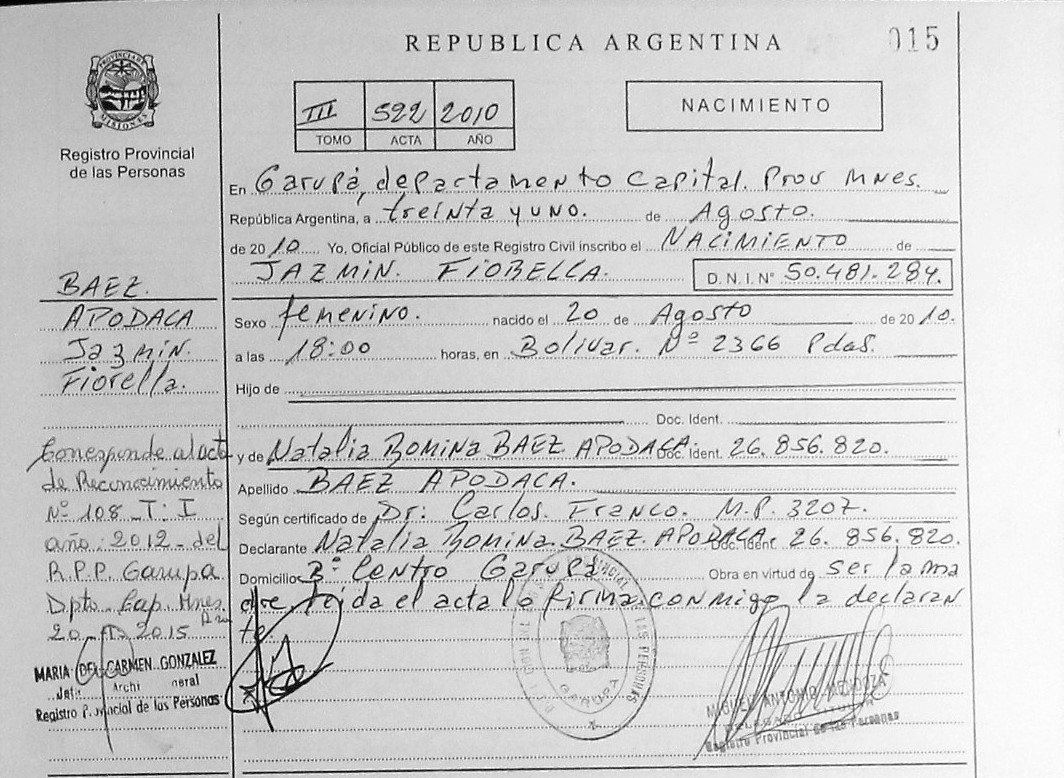 REPUBLICA ARGENTINA
015
PROVINCIA DE
MISIONES
Registro Provincial
de las Personas
III 522 2010
TOMO ACTA AÑO
NACIMIENTO
En Garupá, departamento Capital. Prov Mnes.
República Argentina, a treinta y uno. de Agosto.
de 2010 Yo, Oficial Público de este Registro Civil inscribo el NACIMIENTO de
JAZMIN. FIORELLA. D.N.I.Nº 50.481.284.
Sexo femenino. nacido el 20 de Agosto de 2010.
a las 18:00 horas, en Bolivar. Nº 2366 Pdas.
Hijo de
Doc. Ident.
y de Natalia Romina BAEZ APODACA. Doc. Ident. 26.856.820.
Apellido BAEZ APODACA.
Según certificado de Dr: Carlos. Franco. M.P. 3207.
Declarante Natalia Romina. BAEZ. APODACA. Doc. Ident. 26.856.820.
Domicilio Bº Centro Garupá Obra en virtud de ser la ma
dre, leida el acta la firma conmigo la declaran
te.
BAEZ.
APODACA
Jazmin.
Fiorella.
Corresponde al acta
de Reconocimiento
Nº 108 T: I
año: 2012 - del
R.P.P. Garupa
Dpto. Cap. Mnes.
2015
MARIA DEL CARMEN GONZALEZ
Archi neral
Registro Provincial de las Personas
LAS PERSONAS
GARUPA
MIGUEL ANTONIO MENDOZA
Registro Provincial de las Personas